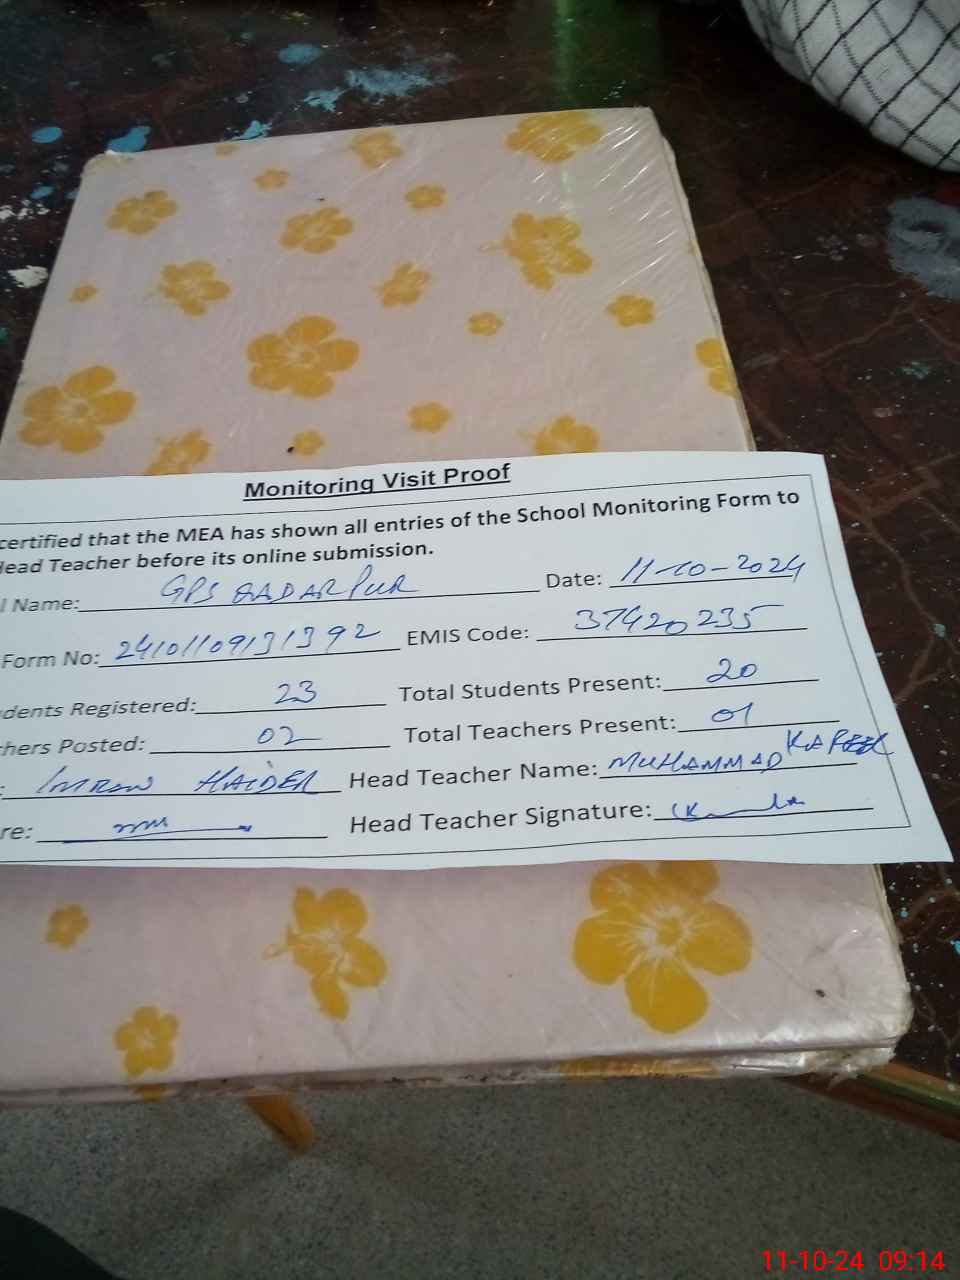 Monitoring Visit Proof
certified that the MEA has shown all entries of the School Monitoring Form to
Head Teacher before its online submission.
l Name: GPS QADAR PUR Date: 11-10-2024
Form No: 24101109131392 EMIS Code: 37420235
dents Registered: 23 Total Students Present: 20
hers Posted: 02 Total Teachers Present: 01
: IMRAN HAIDER Head Teacher Name: MUHAMMAD
re: Head Teacher Signature:
11-10-24 09:14